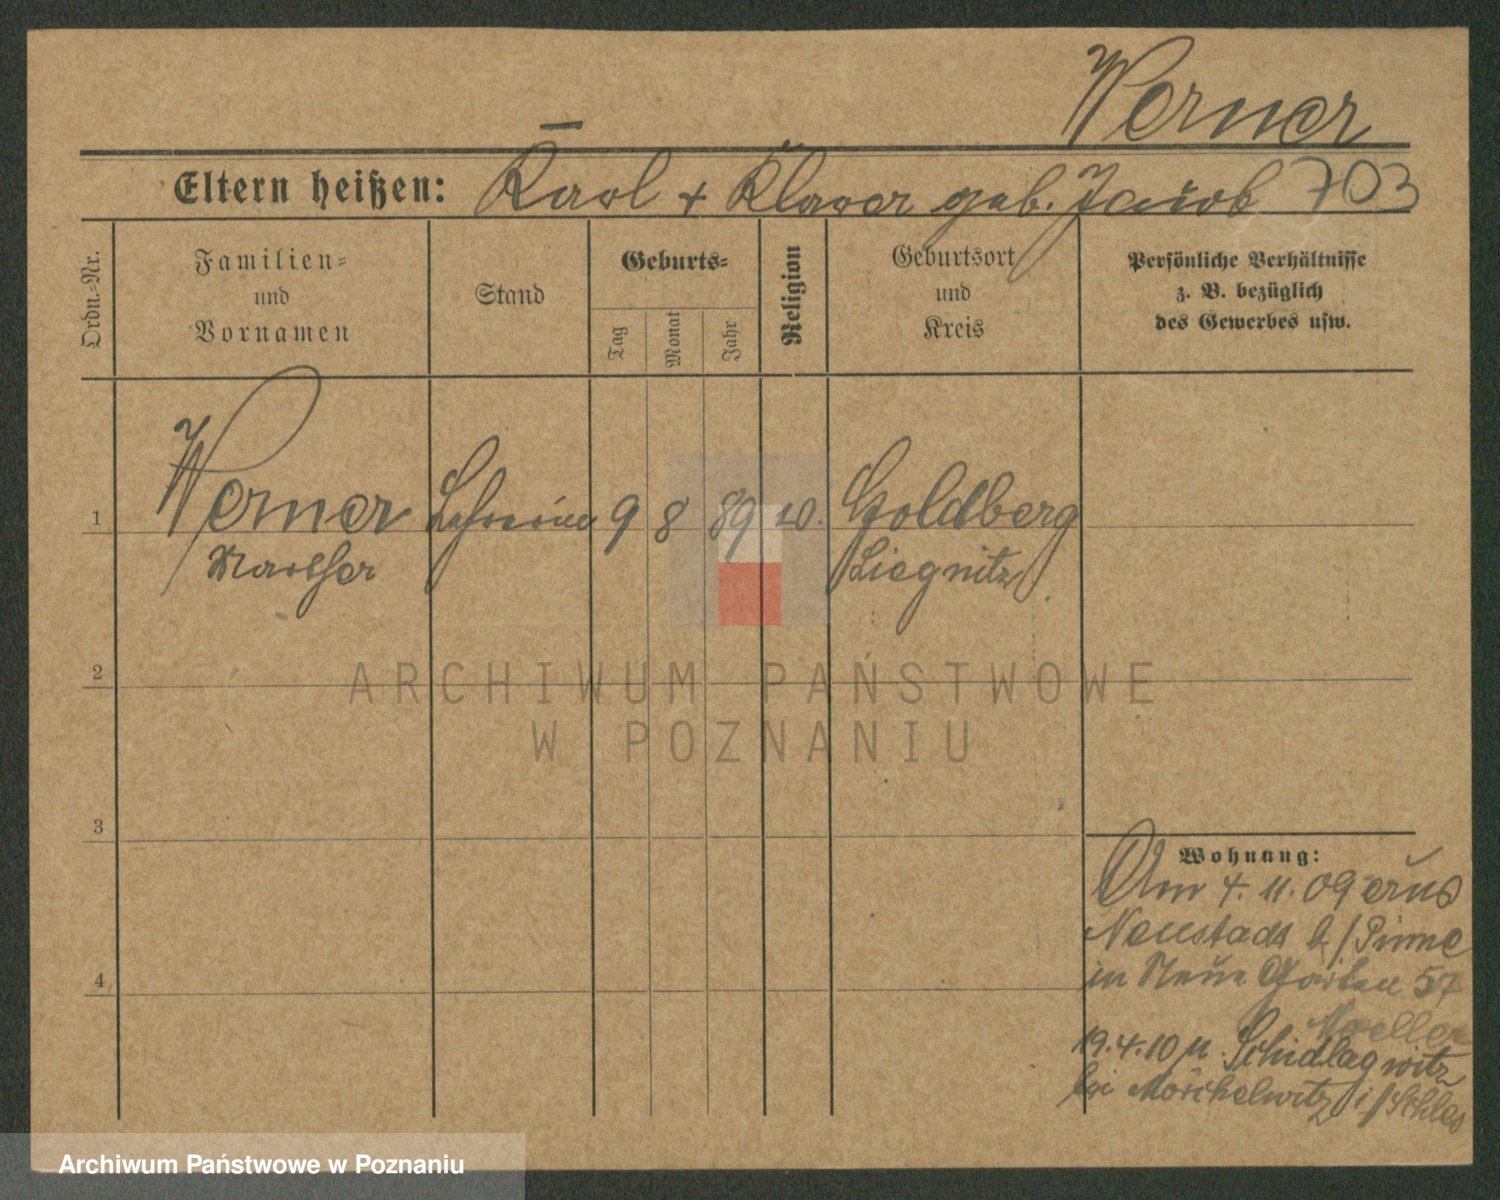 Werner
Eltern heißen: Karl + Klara geb. Jacob 703
Ordn.-Nr.
Familien-
und
Vornamen
Stand
Geburts-
Tag
Monat
Jahr
Religion
Geburtsort
und
Kreis
Persönliche Verhältnisse
z. B. bezüglich
des Gewerbes usw.
1 Werner Lehrerin 9 8 89 Goldberg
Martha Liegnitz
2
3
4
Wohnung:
Am 4. 11. 09 aus
Neustadt b/Pinne
in Neue Garten 57
Moeller
19.4.10 n. Schidlagwitz
bei Mörschelwitz i/Schles
ARCHIWUM PAŃSTWOWE
W POZNANIU
Archiwum Państwowe w Poznaniu